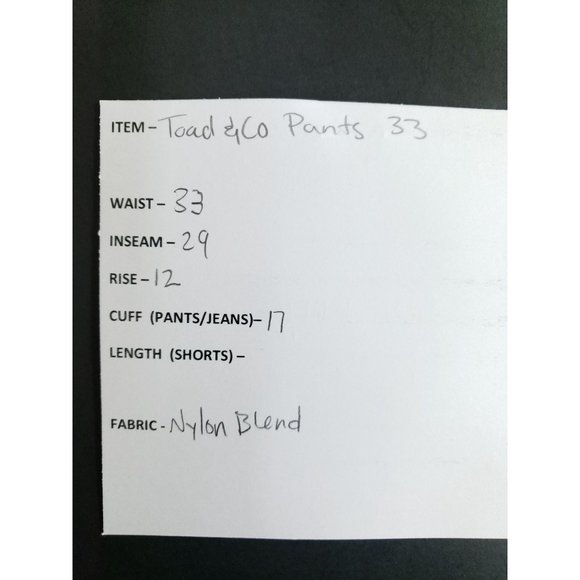 ITEM – Toad & Co Pants 33
WAIST – 33
INSEAM – 29
RISE – 12
CUFF (PANTS/JEANS)– 17
LENGTH (SHORTS) –
FABRIC - Nylon Blend